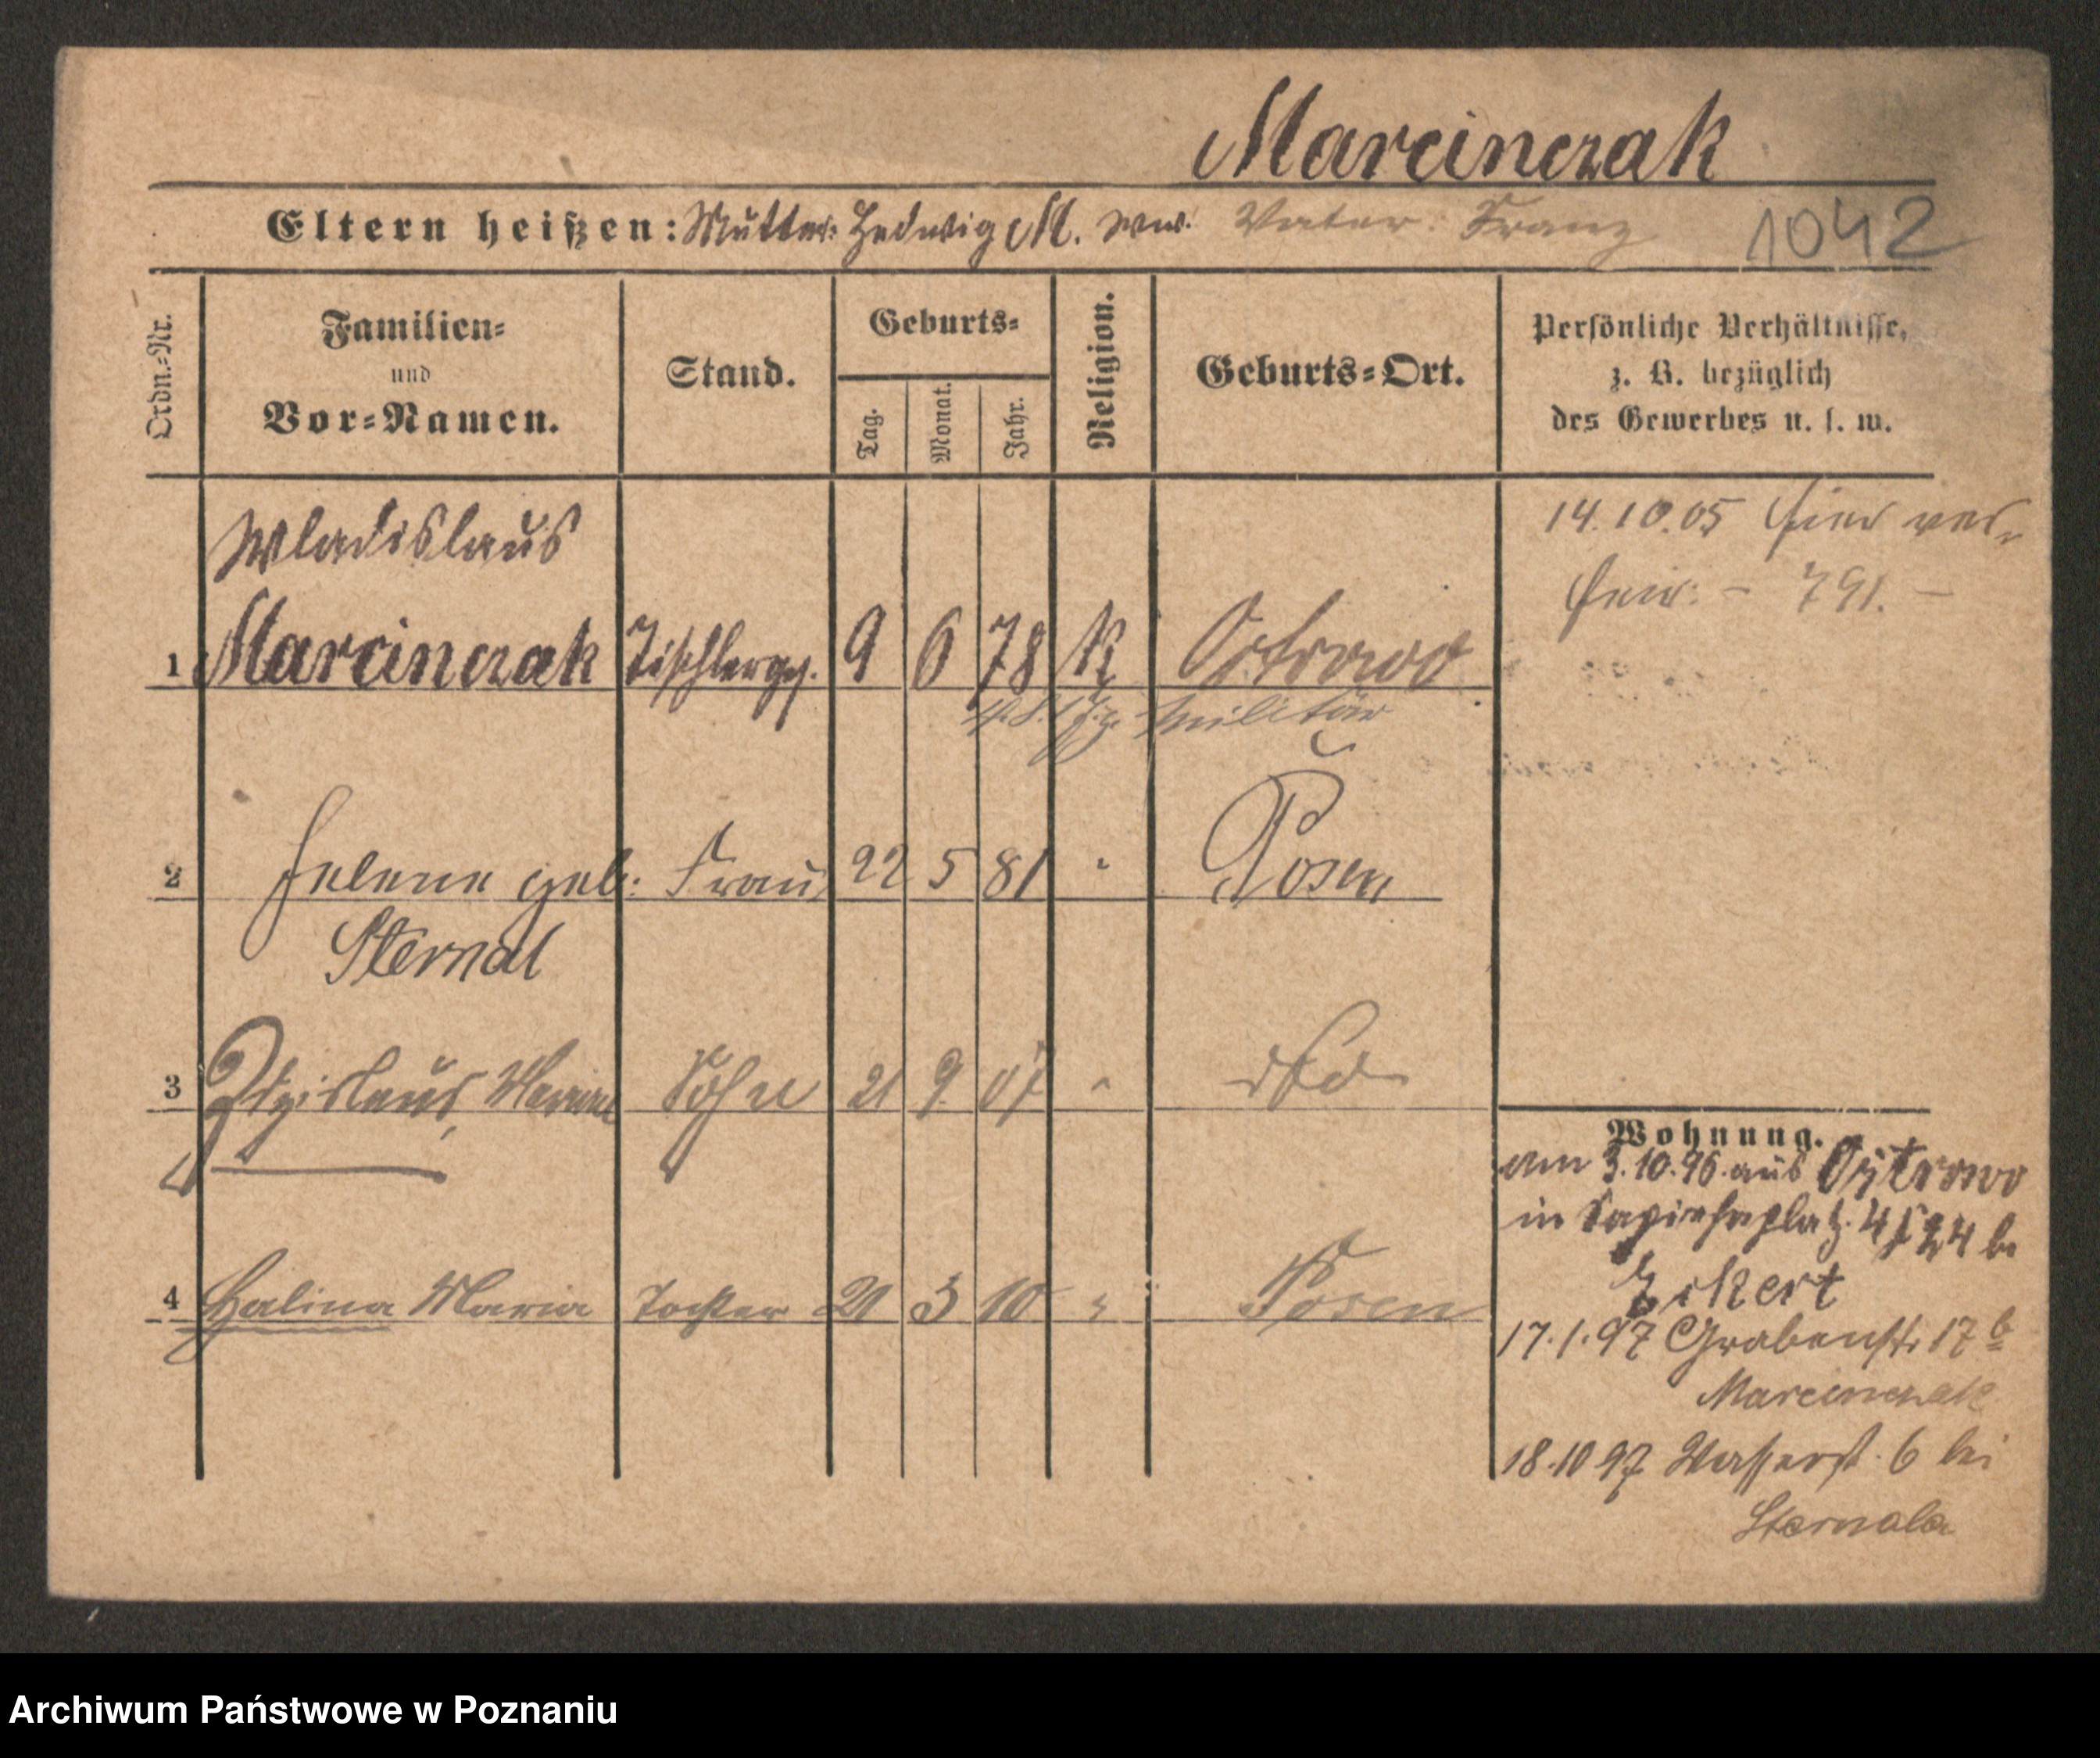 Marcinczak
Eltern heißen: Mutter: Hedwig M. ww. Vater: Franz 1042
Ordn.-Nr.
Familien-
und
Vor-Namen.
Stand.
Geburts-
Tag.
Monat.
Jahr.
Religion.
Geburts-Ort.
Persönliche Verhältnisse,
z. B. bezüglich
des Gewerbes u. s. w.
Wladislaus
1 Marcinczak Tischlerges. 9 6 78 K Ostrowo
Militär
14.10.05 hier ver-
heir. - 791. -
2 Helene geb. Frau 22 5 81 " Posen
Sternal
3 Zdzislaus, Marian Sohn 21 9 07 "
4 Halina Maria Tochter 21 3 10 " Posen
Wohnung.
am 3.10.96 aus Ostrowo
in Sapiehaplatz 4 24 b
Eckert
17.1.97 Grabenstr 17 b
Marcinczak
18.10 97 Wasserst. 6 bei
Sternala
Archiwum Państwowe w Poznaniu